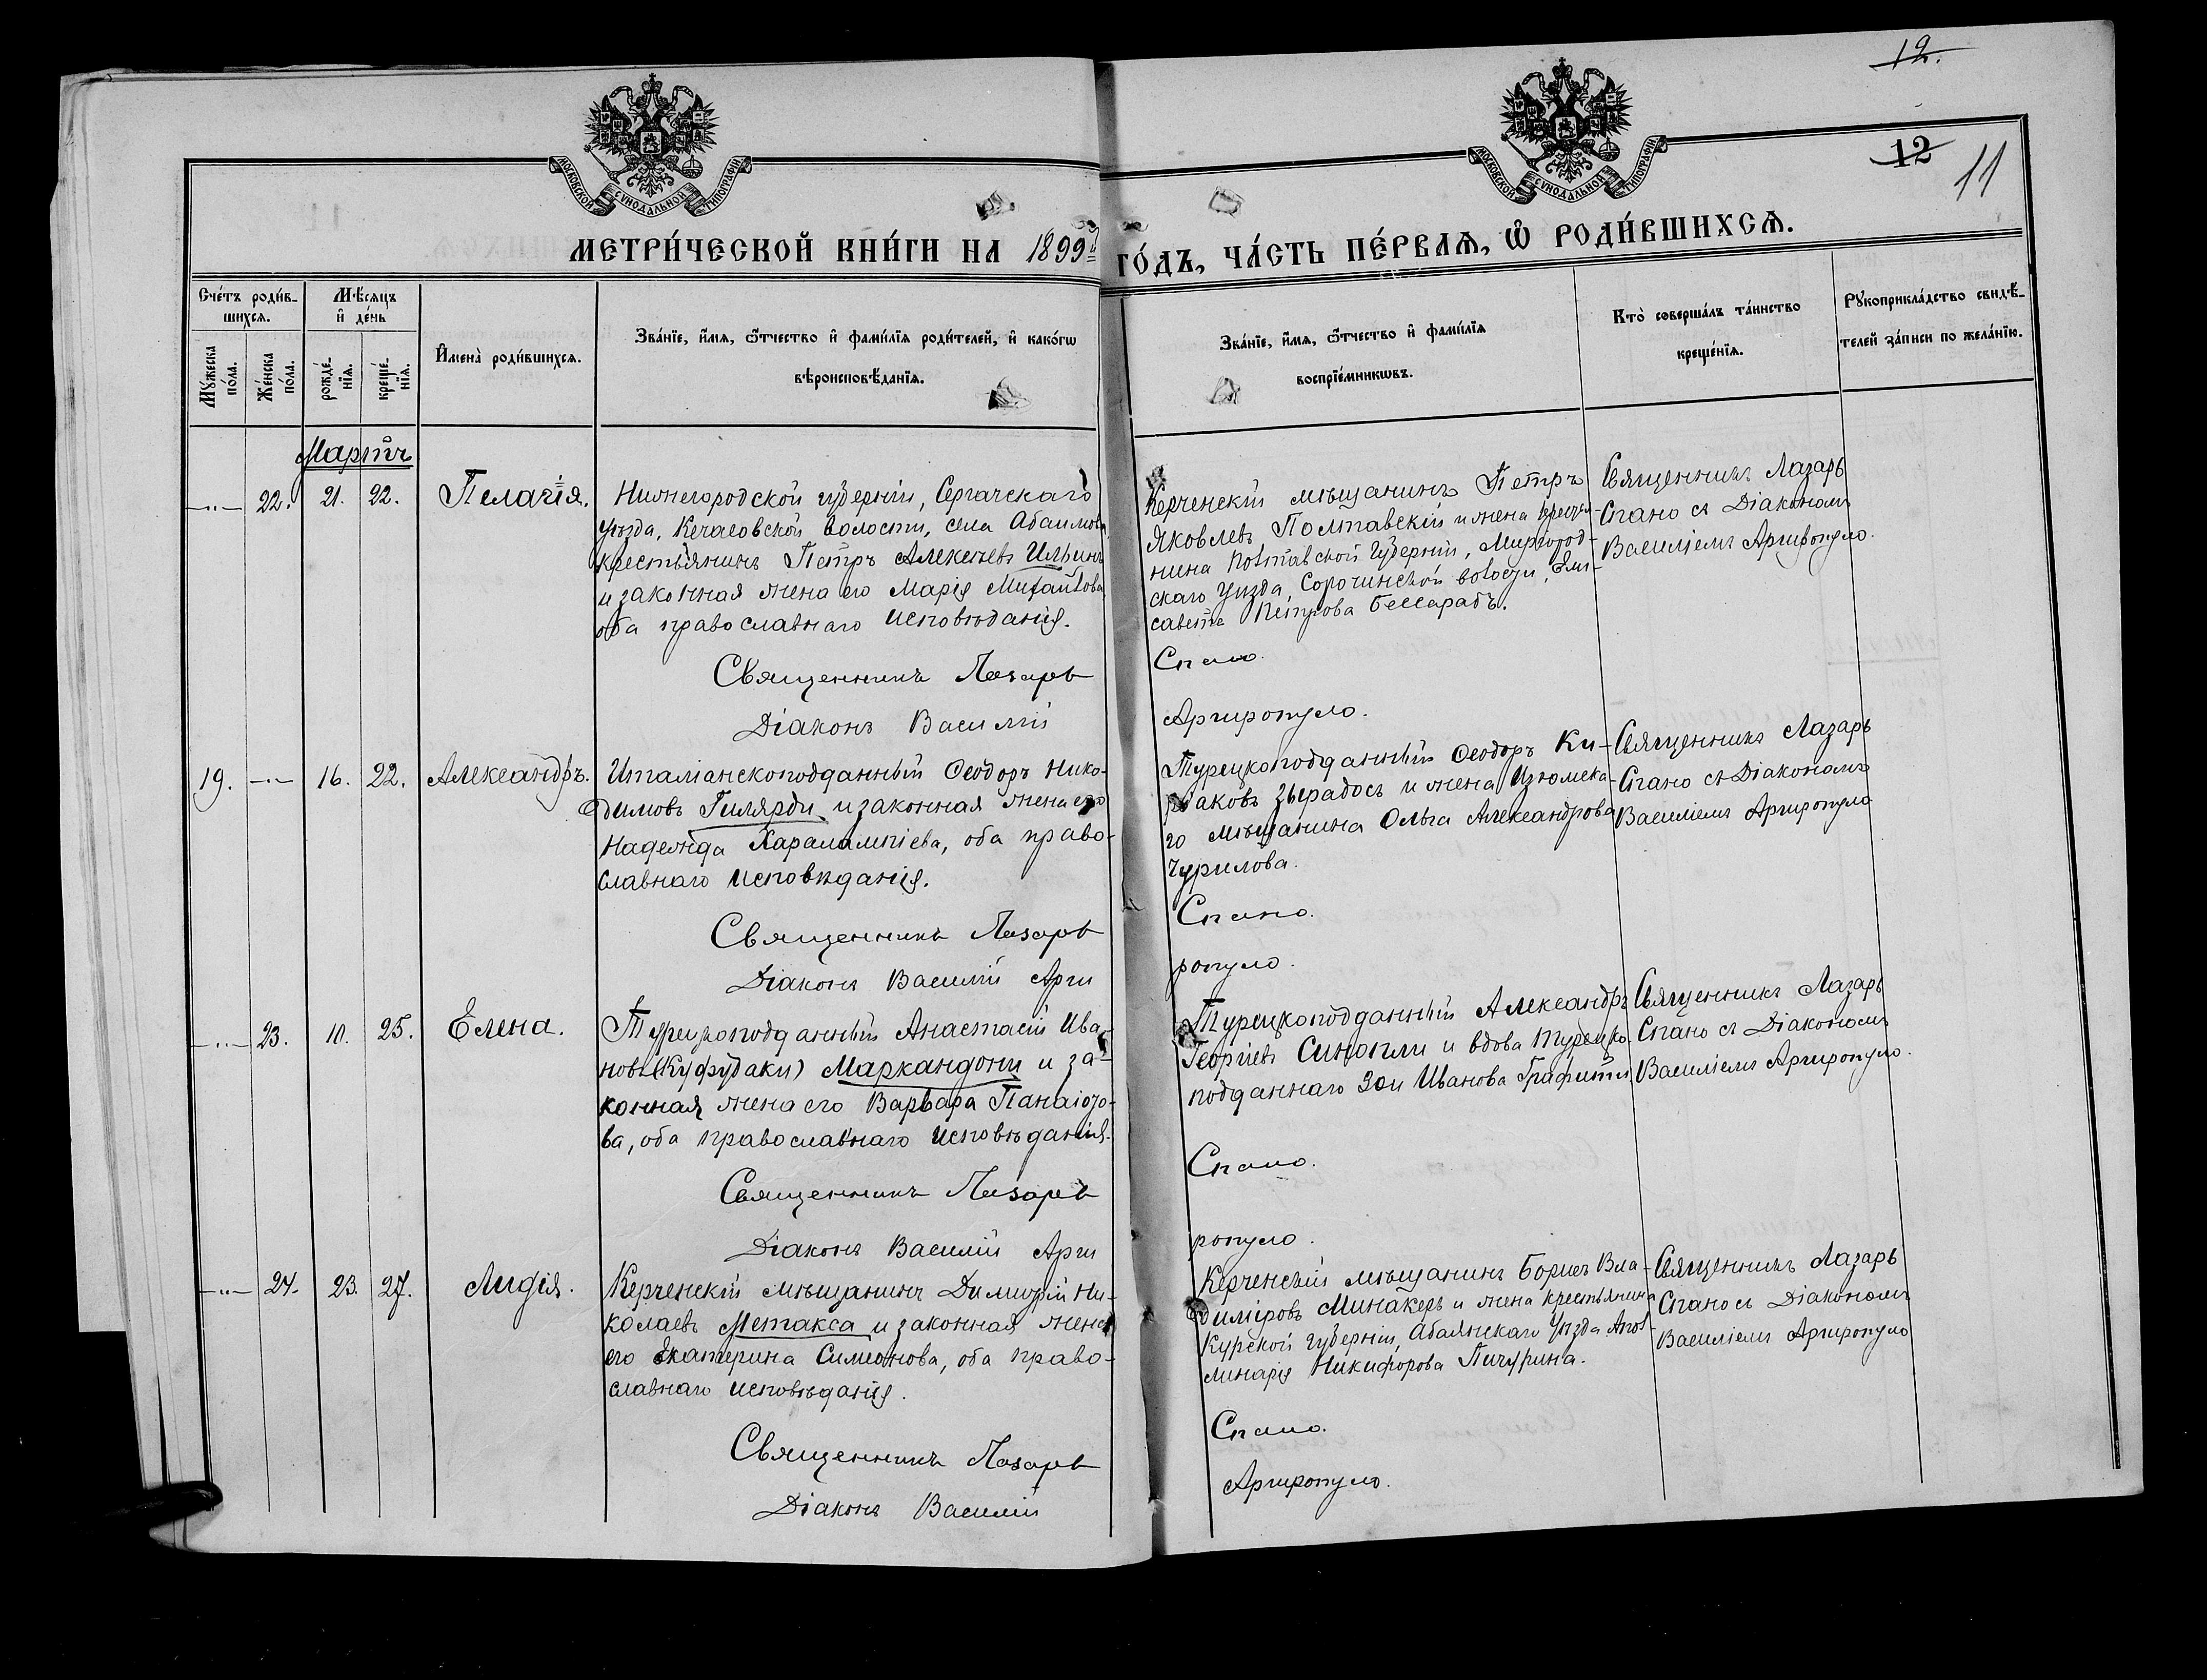 12.
12
11
МОСКОВСКОЙ СУНОДАЛЬНОЙ ТИПОГРАФІИ
МОСКОВСКОЙ СУНОДАЛЬНОЙ ТИПОГРАФІИ
МЕТРИ́ЧЕСКОЙ КНИ́ГИ НА 1899й ГО́ДЪ, ЧА́СТЬ ПЕ́РВАѦ, Ѡ РОДИ́ВШИХСѦ.
Сче́тъ роди́в-
шихсѧ.
Мѣ́сѧцъ
и҆ де́нь
Мꙋ́жеска
по́ла.
Же́нска
по́ла.
рожде́-
нїѧ.
креще́-
нїѧ.
И҆мена̀ роди́вшихсѧ.
Зва́нїе, и҆́мѧ, ѻ҆́тчество и҆ фами́лїѧ роди́телей, и҆ како́гѡ
вѣроисповѣ́данїѧ.
Зва́нїе, и҆́мѧ, ѻ҆́тчество и҆ фами́лїѧ
воспрїе́мникѡвъ.
Кто̀ соверша́лъ та́инство
креще́нїѧ.
Рꙋкоприкла́дство свидѣ́-
телей за́писи по жела́нїю.
Мартъ
22. 21. 22. Пелагія.
Нижегородской губерніи, Сергачскаго
уѣзда, Кечасовской волости, села Абаимова
крестьянинъ Петръ Алексѣевъ Ильинъ
и законная жена его Марія Михайлова
оба православнаго исповѣданія.
Священникъ Лазарь
Діаконъ Василій
Керченскій мѣщанинъ Петръ
Яковлевъ Полтавскій и жена крестья-
нина Полтавской губерніи, Миргород-
скаго уѣзда, Сорочинской волости, Ели-
савета Петрова Бессарабъ.
Спано.
Аргиропуло.
Священникъ Лазарь
Спано съ Діакономъ
Василіемъ Аргиропуло.
19. 16. 22. Александръ.
Италіанскоподданный Ѳеодоръ Нико-
димовъ Гилярди и законная жена его
Надежда Харалампіева, оба право-
славнаго исповѣданія.
Священникъ Лазарь
Діаконъ Василій Арги
Турецкоподданный Ѳеодоръ Ки-
ріаковъ Зыградосъ и жена Изюмска-
го мѣщанина Ольга Александрова
Чурилова.
Спано.
ропуло.
Священникъ Лазарь
Спано съ Діакономъ
Василіемъ Аргиропуло
23. 10. 25. Елена.
Турецкоподданный Анастасій Ива-
новъ (Куфудаки) Маркандони и за-
конная жена его Варвара Панаіото-
ва, оба православнаго исповѣданія.
Священникъ Лазарь
Діаконъ Василій Арги
Турецкоподданный Александръ
Георгіевъ Синопли и вдова турецко-
подданнаго Зои Иванова
Спано.
ропуло.
Священникъ Лазарь
Спано съ Діакономъ
Василіемъ Аргиропуло.
24. 23. 27. Лидія.
Керченскій мѣщанинъ Димитрій Ни-
колаевъ Метакса и законная жена
его Екатерина Симеонова, оба право-
славнаго исповѣданія.
Священникъ Лазарь
Діаконъ Василій
Керченскій мѣщанинъ Борисъ Вла-
диміровъ Минакеръ и жена крестьянина
Курской губерніи, Абаянскаго уѣзда Апол-
линарія Никифорова Пичурина.
Спано.
Аргиропуло.
Священникъ Лазарь
Спано съ Діакономъ
Василіемъ Аргиропуло